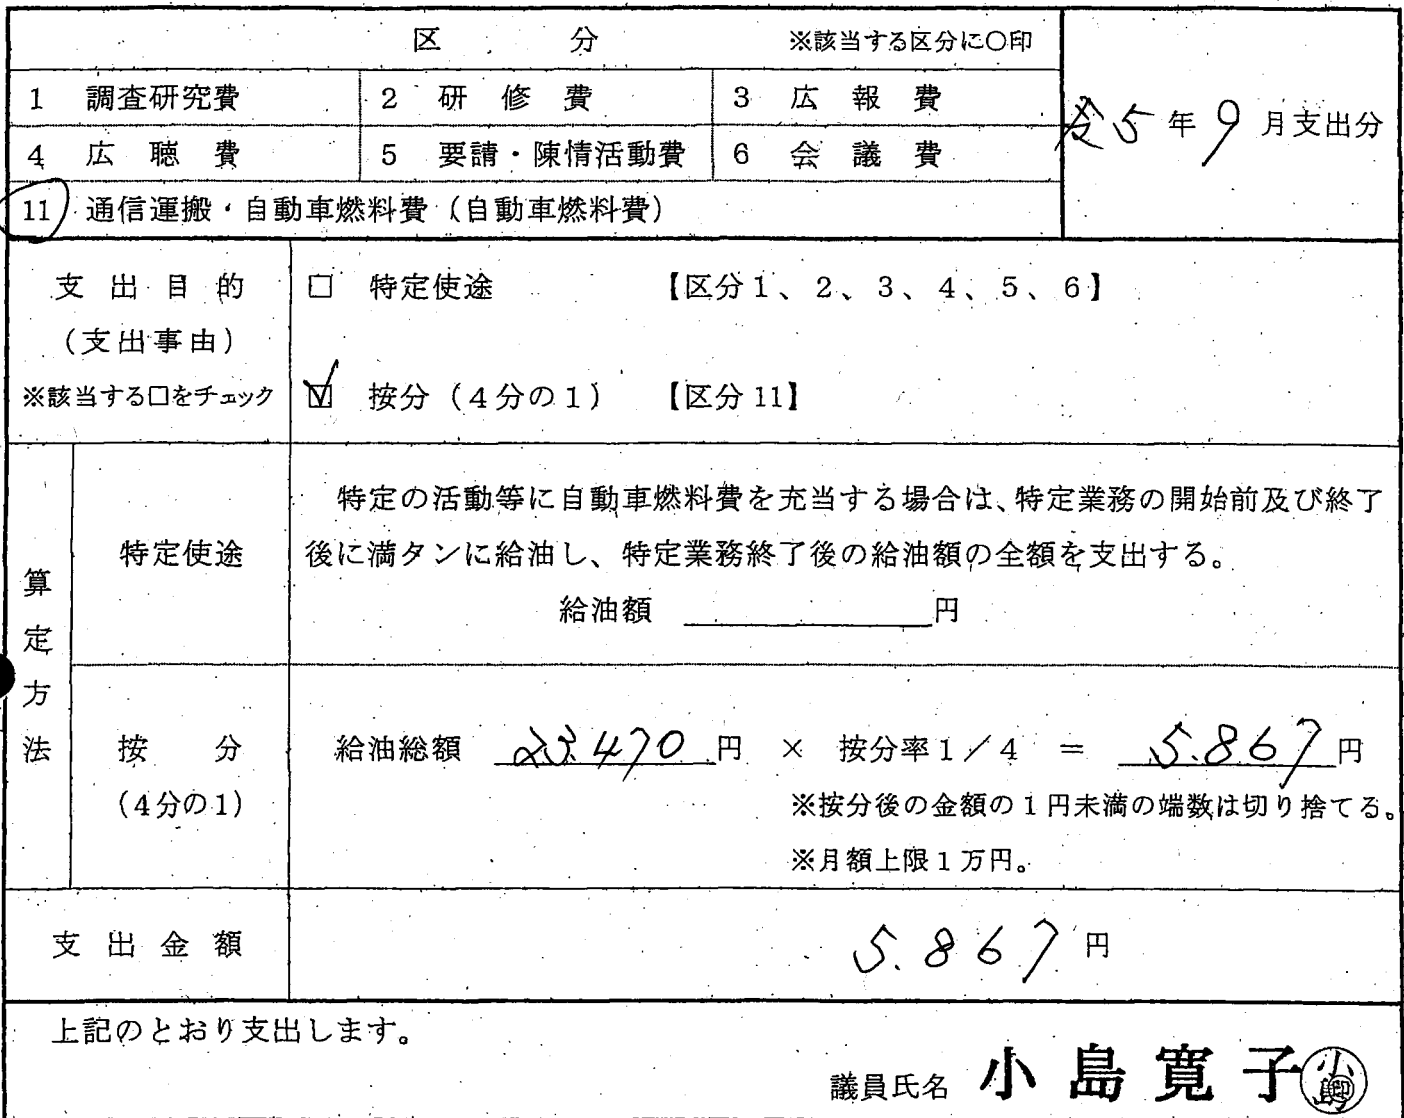 区 分 ※該当する区分に○印
1 調査研究費 2 研修費 3 広報費
令5年9月支出分
4 広聴費 5 要請・陳情活動費 6 会議費
11 通信運搬・自動車燃料費(自動車燃料費)
支出目的
(支出事由)
※該当する□をチェック
□ 特定使途 【区分1、2、3、4、5、6】
☑ 按分(4分の1) 【区分11】
算定方法
特定使途
特定の活動等に自動車燃料費を充当する場合は、特定業務の開始前及び終了
後に満タンに給油し、特定業務終了後の給油額の全額を支出する。
給油額 円
按分
(4分の1)
給油総額 23.470円 × 按分率1/4 = 5.867円
※按分後の金額の1円未満の端数は切り捨てる。
※月額上限1万円。
支出金額 5.867円
上記のとおり支出します。
議員氏名 小島寛子 小島